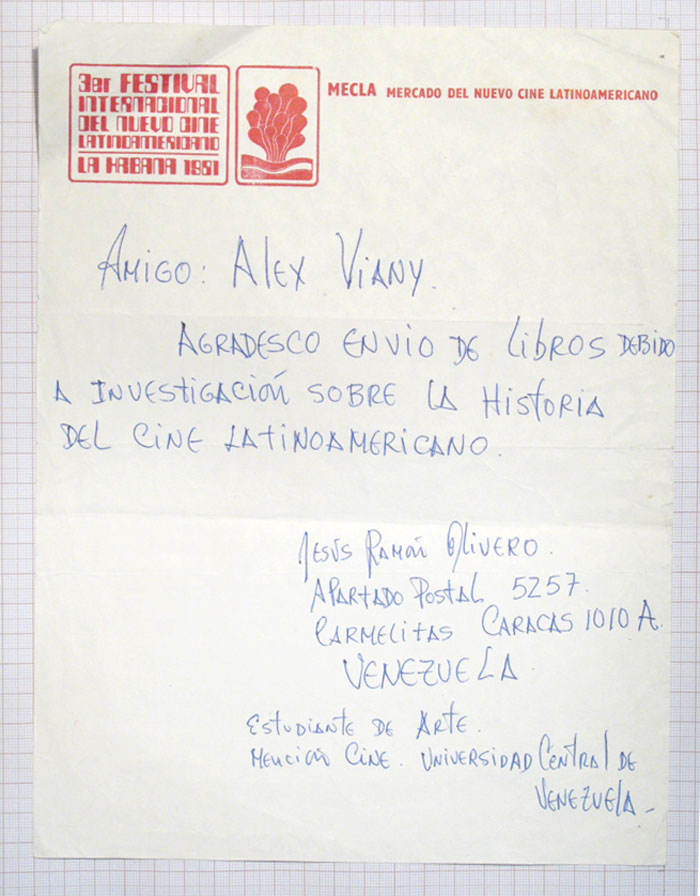 3er FESTIVAL
INTERNACIONAL
DEL NUEVO CINE
LATINOAMERICANO
LA HABANA 1981
MECLA MERCADO DEL NUEVO CINE LATINOAMERICANO
AMIGO: ALEX VIANY.
AGRADESCO ENVIO DE LIBROS DEBIDO
A INVESTIGACIÓN SOBRE LA HISTORIA
DEL CINE LATINOAMERICANO.
JESÚS RAMÓN OLIVERO.
APARTADO POSTAL 5257.
CARMELITAS CARACAS 1010 A.
VENEZUELA.
ESTUDIANTE DE ARTE.
MENCIÓN CINE. UNIVERSIDAD CENTRAL DE
VENEZUELA_